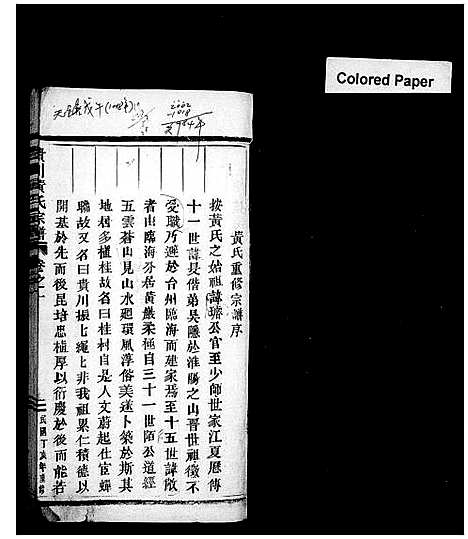 Colored Paper
2002
1018
984年
黃氏重修宗譜序
按黃氏之始祖諱瓊公官至少師世家江夏歷傳
十一世諱昆偕弟吳隱於淮陽之山晉世祖徵不
受職乃避於台州臨海而建家焉至十五世諱敞
者由臨海分居黃巖柔極自三十一世陌公道經
五雲蒼山見山水廻環風淳俗美遂卜築於斯其
地居多植桂故名曰桂村自是人文蔚起仕宦蟬
聯故又名曰貴川振上繩上非我祖累仁積德以
開基於先而後昆培忠植厚以衍慶於後而能若
貴川黃氏宗譜
卷之一
民國丁亥年重修